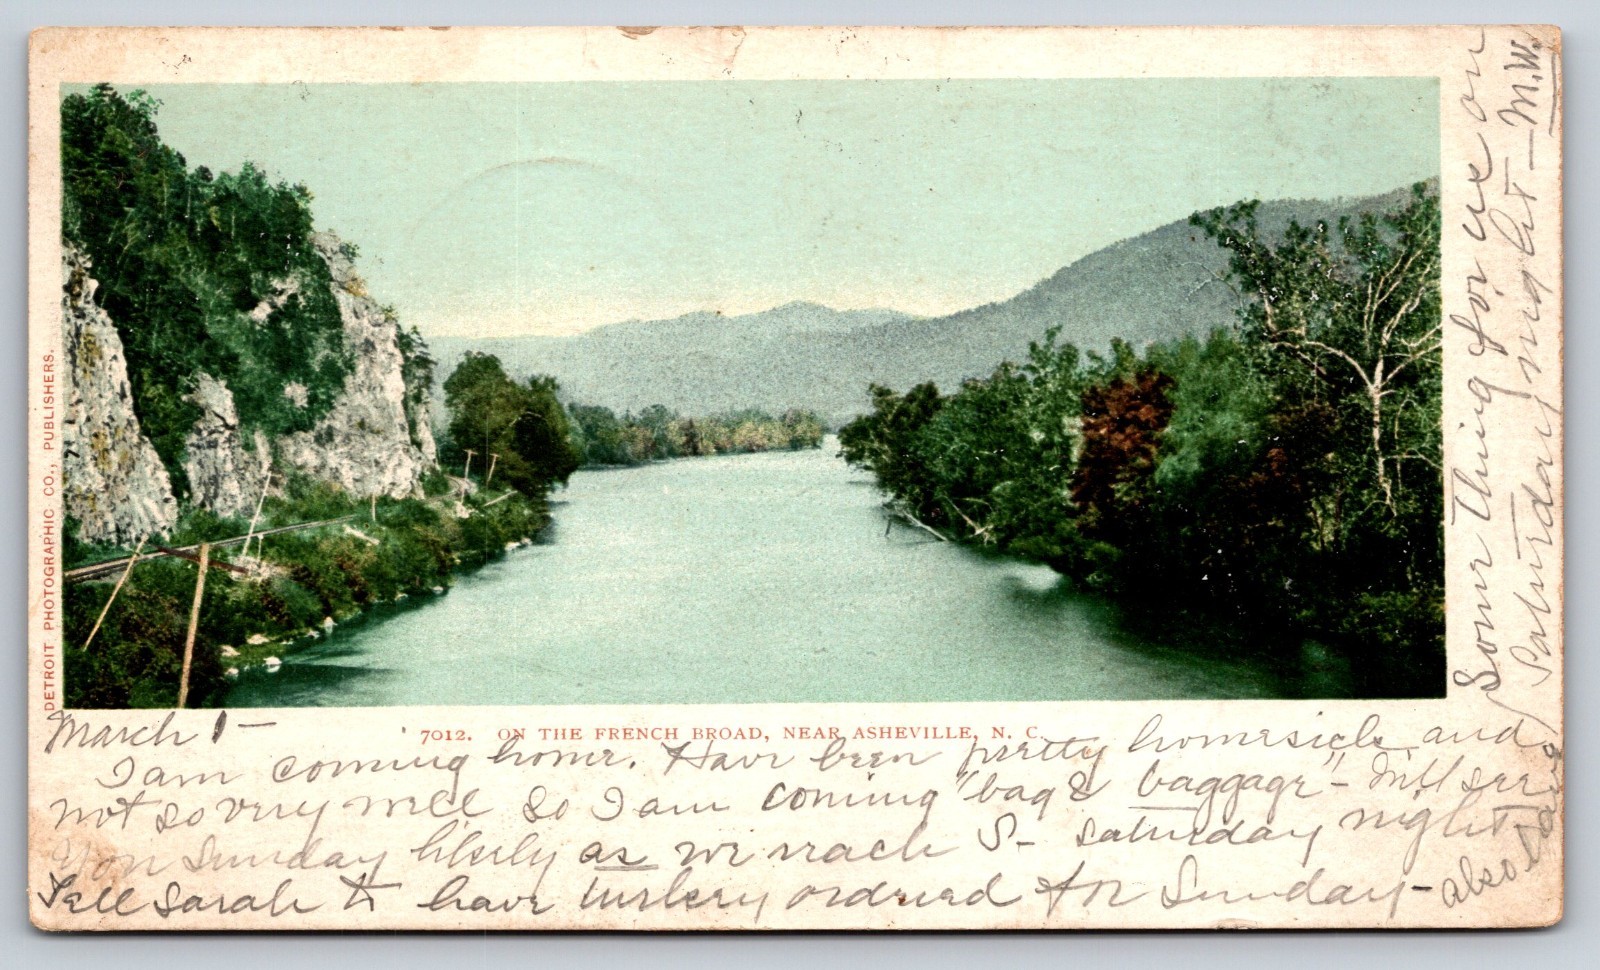 DETROIT PHOTOGRAPHIC CO., PUBLISHERS.
7012. ON THE FRENCH BROAD, NEAR ASHEVILLE, N. C.
March 1 —
I am coming home. Have been pretty homesick and
not so very well so I am coming "bag & baggage" – Will see
you Sunday likely as we reach S– Saturday night
Tell Sarah to have turkey ordered for Sunday –
also have
Some thing for us on
Saturday night — M.W.